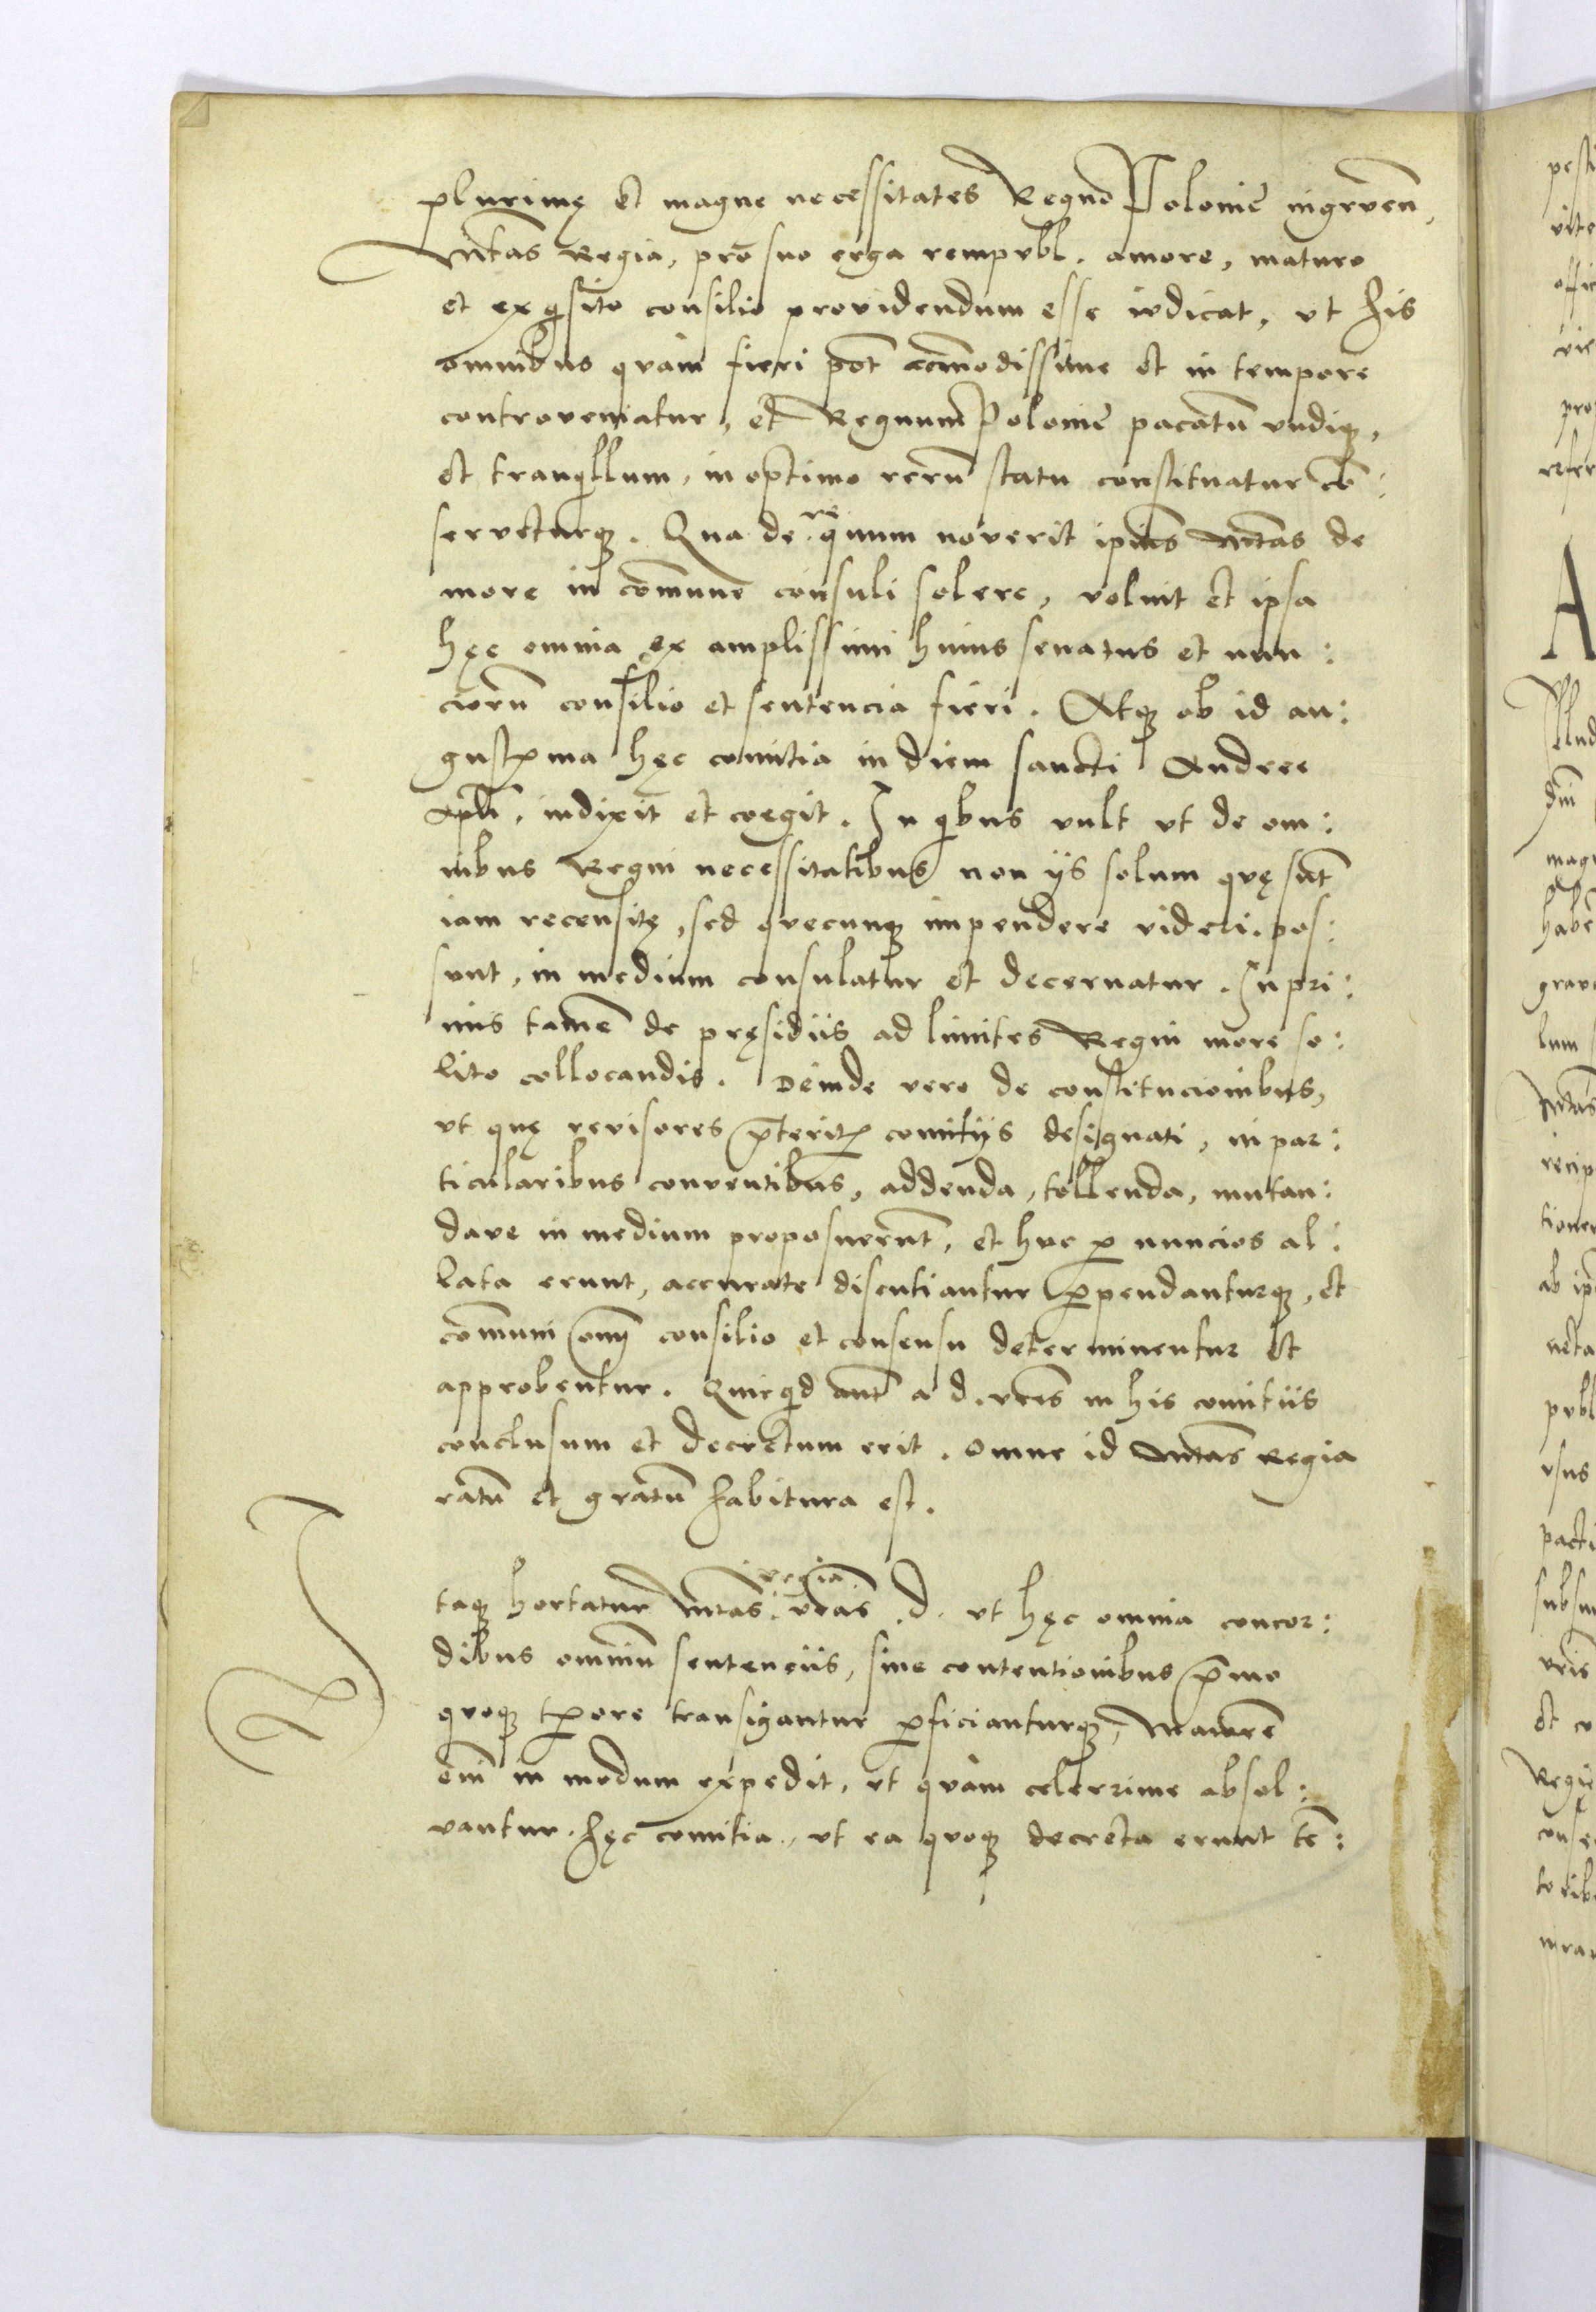 plurimę et magne necessitates Regno Polonie͂ ingruen͂,
Mtas Regia, pro suo erga rempubl. amore, mature
et exqsito consilio providendum esse iudicat, ut his
omnibus quam fieri pot͂ com͂odissime et in tempore
controveniatur, et Regnum Polonie͂ pacatu͂ undiqꝫ,
et tranqllum, in optimo reru͂ statu constituatur co͂:
serveturqꝫ. Qua de re quum noverit ipius Mtas de
more in com͂une consuli solere, voluit et ipsa
hęc omnia ex amplissimi huius senatus et nun:
cioru͂ consilio et sentencia fieri. Atqꝫ ob id au:
gustꝫma hęc comitia in diem sancti Andree
Apli͂, indixit et coegit. In qbus vult ut de om:
nibus Regni necessitatibus non ijs solum quę sunt͂
iam recensitę, sed quecunqꝫ impendere videri pos:
sunt, in medium consulatur et decernatur. In pri:
mis tame͂ de pręsidiis ad limites Regni more so:
lito collocandis. Deinde vero de constitucionibus,
ut quę revisores p͂teritꝫ comitijs designati, in par:
ticularibus conventibus, addenda, tollenda, mutan:
dave in medium proposuerunt͂, et huc ꝑ nuncios al:
lata erunt, accurate discutiantur ꝑpendanturqꝫ, et
com͂uni om͂ consilio et consensu determinentur et
approbentur. Quicqd aut͂ a d. vr͂is in his comitiis
conclusum et decretum erit. Omne id Mtas Regia
ratu͂ et gratu͂ habitura est.
Itaqꝫ hortatur Mtas regia vr͂as .d. ut hęc omnia concor:
dibus omniu͂ sentenciis, sine contentionibus p͂mo
quoqꝫ tꝑore transigantur ꝑficianturqꝫ, Maiore͂
eni͂ in modum expedit, ut quam celerrime absol:
vantur hęc comitia, ut ea quoqꝫ decreta erunt te͂: